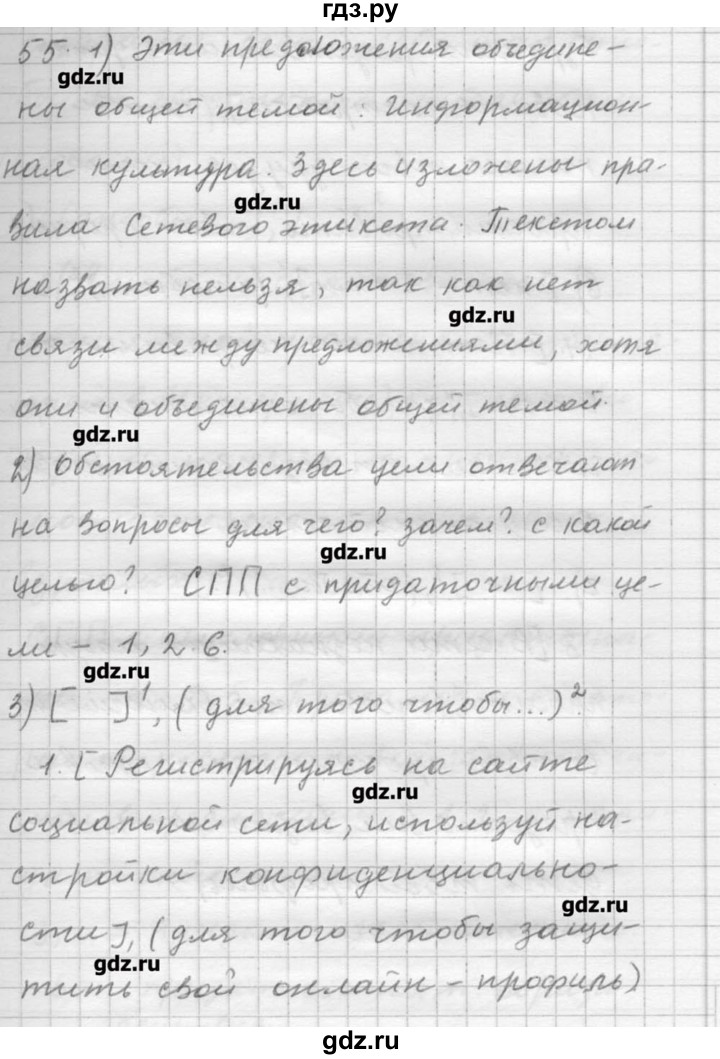 гдз.ру
55. 1) Эти предложения объедине-
gdz.ru
ны общей темой: Информацион-
ная культура. Здесь изложены пра-
gdz.ru
вила Сетевого этикета. Текстом
назвать нельзя, так как нет
gdz.ru
связи между предложениями, хотя
они и объединены общей темой.
gdz.ru
2) Обстоятельства цели отвечают
на вопросы для чего? зачем? с какой
gdz.ru
целью? СПП с придаточными це-
ли - 1, 2. 6.
gdz.ru
3) [ ]¹, ( для того чтобы...)².
1. [ Регистрируясь на сайте
gdz.ru
социальной сети, используй на-
стройки конфиденциально-
gdz.ru
сти], (для того чтобы защи-
gdz.ru
тить свой онлайн - профиль)
gdz.ru